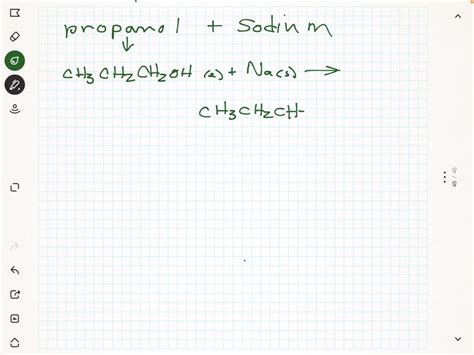 propanol + Sodium
CH3 CH2 CH2OH (l) + Na(s) →
CH3CH2CH